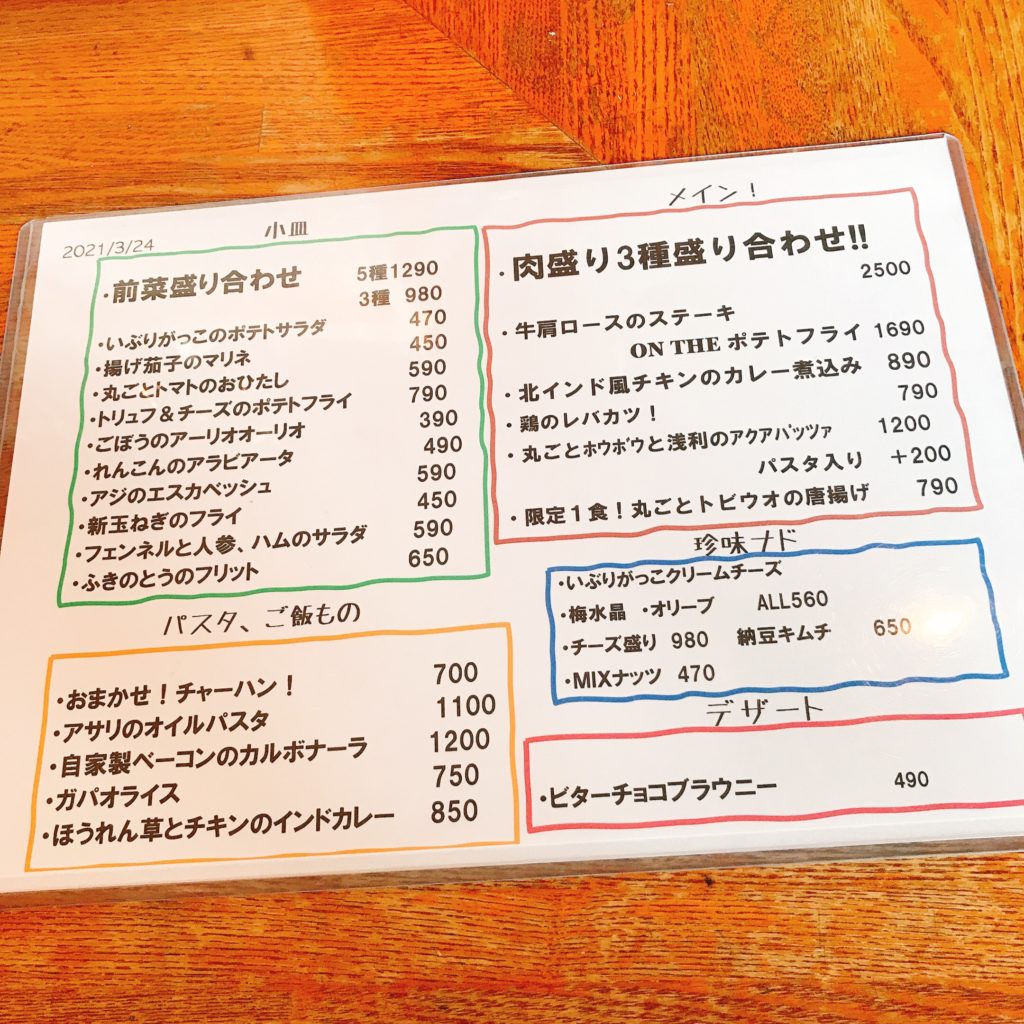 2021/3/24
小皿
・前菜盛り合わせ 5種1290
3種 980
・いぶりがっこのポテトサラダ 470
・揚げ茄子のマリネ 450
・丸ごとトマトのおひたし 590
・トリュフ＆チーズのポテトフライ 790
・ごぼうのアーリオオーリオ 390
・れんこんのアラビアータ 490
・アジのエスカベッシュ 590
・新玉ねぎのフライ 450
・フェンネルと人参、ハムのサラダ 590
・ふきのとうのフリット 650
パスタ、ご飯もの
・おまかせ！チャーハン！ 700
・アサリのオイルパスタ 1100
・自家製ベーコンのカルボナーラ 1200
・ガパオライス 750
・ほうれん草とチキンのインドカレー 850
メイン！
・肉盛り3種盛り合わせ!!
2500
・牛肩ロースのステーキ
ON THE ポテトフライ 1690
・北インド風チキンのカレー煮込み 890
・鶏のレバカツ！ 790
・丸ごとﾎｳﾎﾞｳと浅利のｱｸｱﾊﾟｯﾂｧ 1200
パスタ入り ＋200
・限定１食！丸ごとトビウオの唐揚げ 790
珍味ナド
・いぶりがっこクリームチーズ
・梅水晶 ・オリーブ ALL560
・チーズ盛り 980 納豆キムチ 650
・MIXナッツ 470
デザート
・ビターチョコブラウニー 490